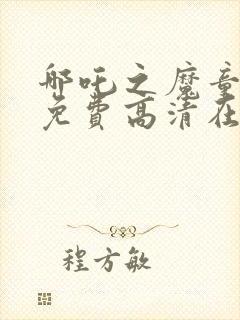 哪吒之魔童
免费高清在
程方敏